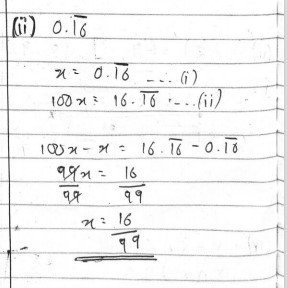 (ii) 0.1̅6̅
x = 0.1̅6̅ --- (i)
100x = 16.1̅6̅ --- (ii)
100x - x = 16.1̅6̅ - 0.1̅6̅
99x/99 = 16/99
x = 16/99